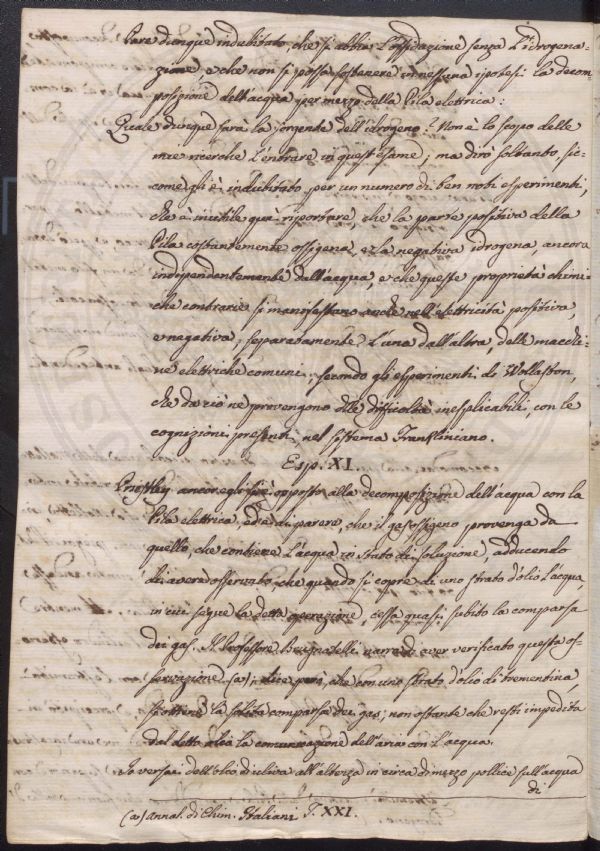 Pare dunque indubitato, che si abbia l'ossidazione senza l'idrogena-
zione, e che non si possa sostenere in nessuna ipotesi la decom-
posizione dell'acqua per mezzo della Pila elettrica.
Quale dunque sarà la sorgente dell'idrogeno? Non è lo scopo delle
mie ricerche l'entrare in quest'esame; ma dirò soltanto, sic-
come gli è indubitato per un numero di ben noti esperimenti,
che è inutile quà riportare, che la parte positiva della
Pila costantemente ossigena, e la negativa idrogena, ancora
indipendentemente dall'acqua, e che queste proprietà chimi-
che contrarie si manifestano anche nell'elettricità positiva,
e negativa, separatamente l'una dall'altra, delle macchi-
ne elettriche comuni, secondo gli esperimenti di Wollaston,
che da ciò ne provengono delle difficoltà inesplicabili, con le
cognizioni presenti, nel sistema Frankliniano.
Esp. XI.
Priestley ancor egli si è opposto alla decomposizione dell'acqua con la
Pila elettrica, ed è di parere, che il gas ossigeno provenga da
quello, che contiene l'acqua in stato di soluzione, adducendo
di avere osservato, che quando si copre di uno strato d'olio l'acqua,
in cui segue la detta operazione, cessa quasi subito la comparsa
dei gas. Il Professore Brugnatelli narra di aver verificato questa os-
servazione (a); dice però, che con uno strato d'olio di trementina,
si ottiene la solita comparsa dei gas, non ostante che resti impedita
dal detto olio la comunicazione dell'aria con l'acqua.
Io versai dell'olio di uliva all'altezza in circa di mezzo pollice sull'acqua
di
(a) Annal. di Chim. Italiani T. XXI.